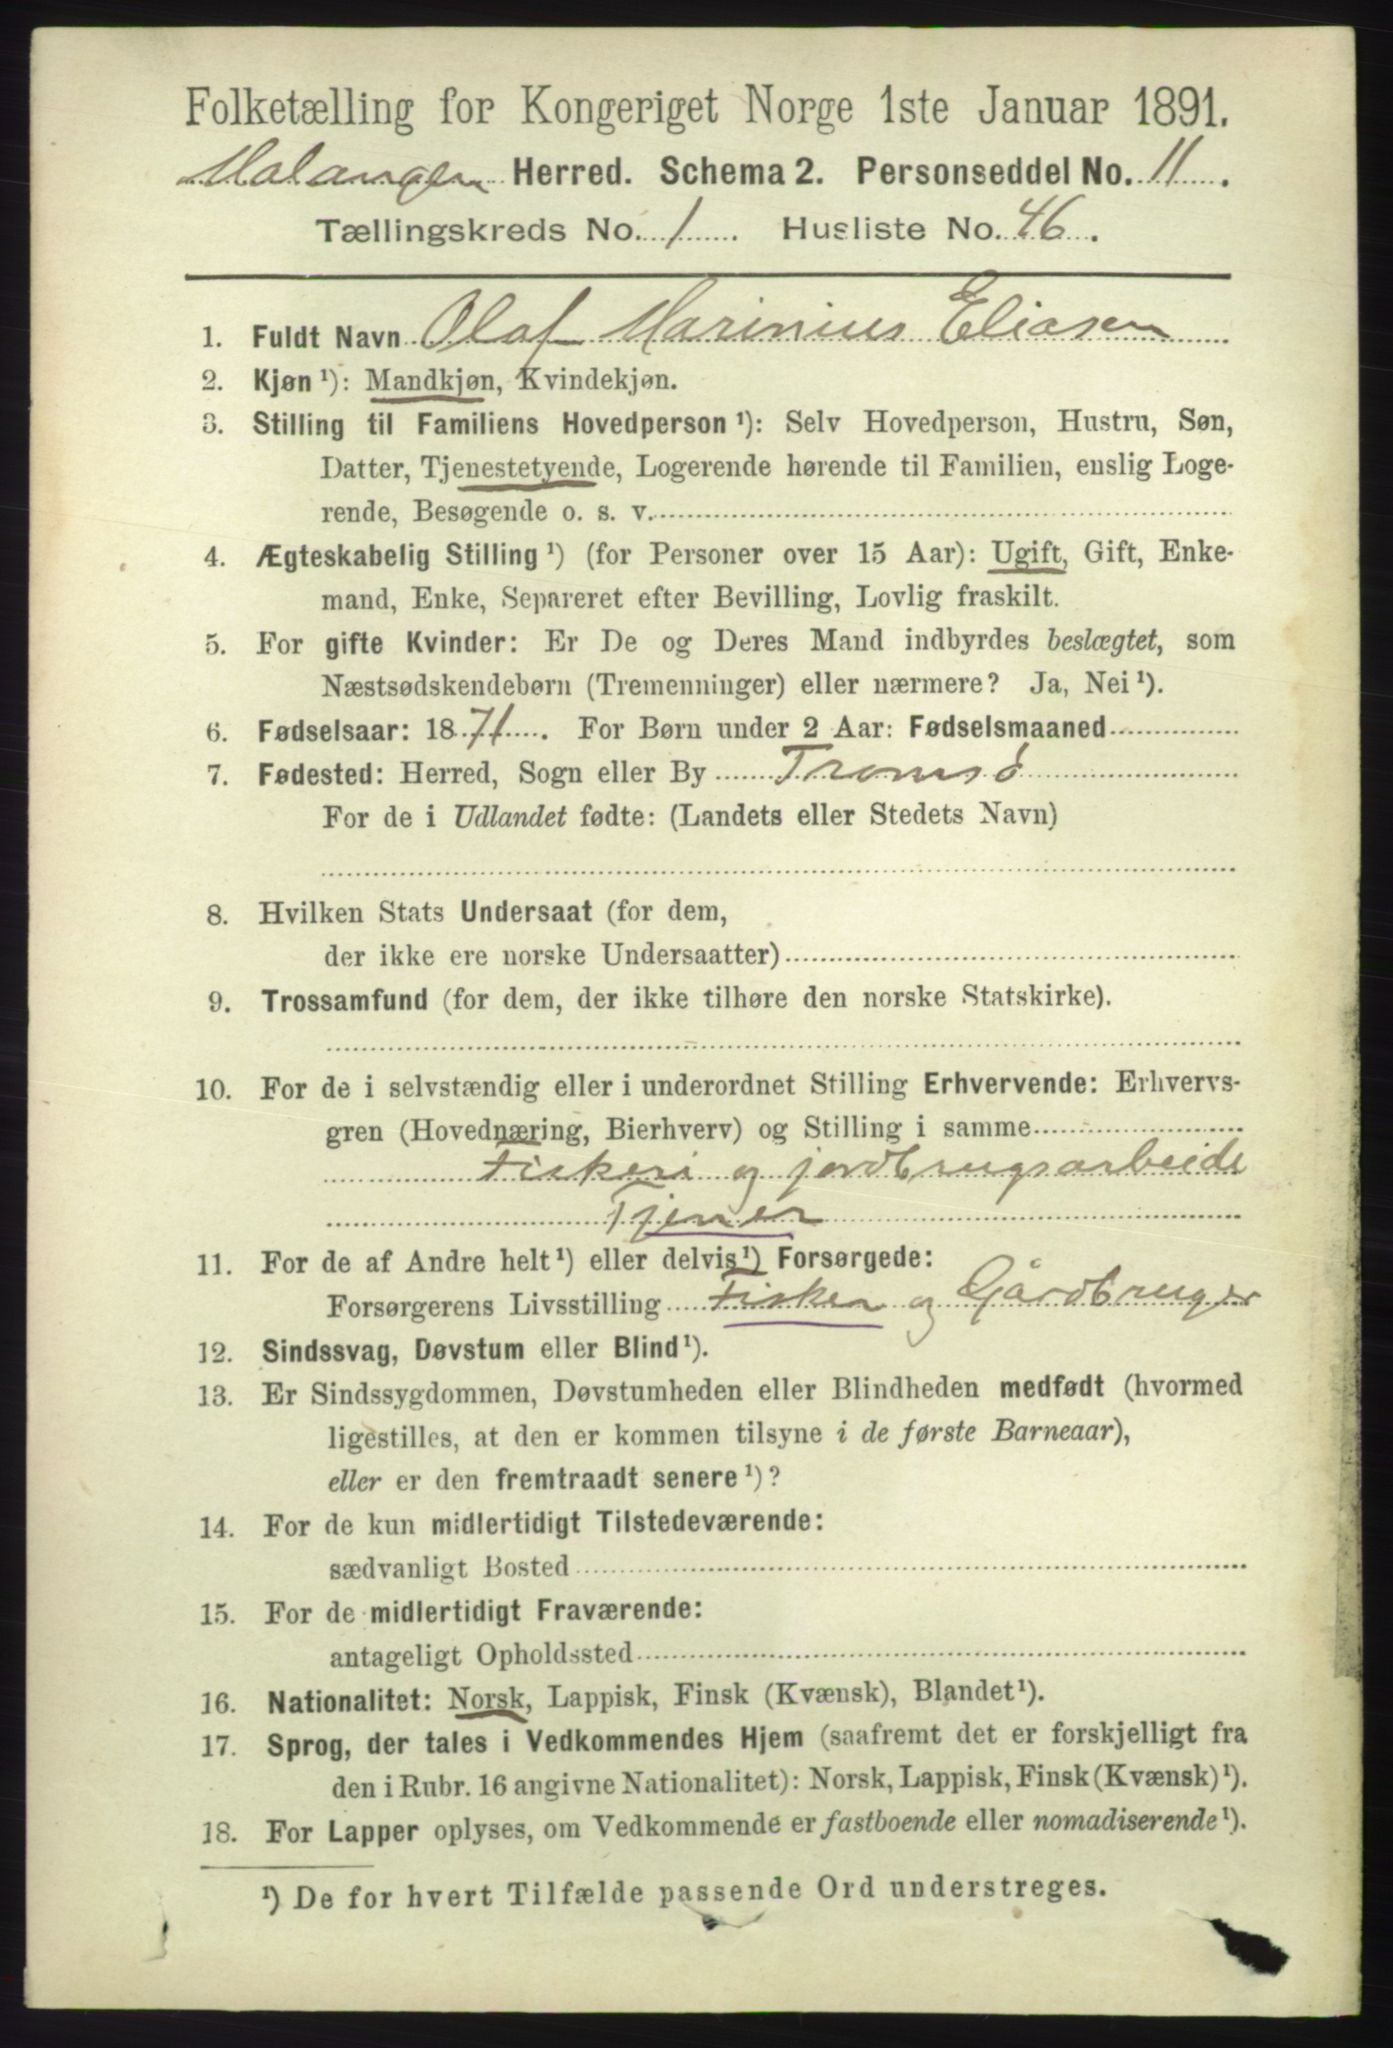 Folketælling for Kongeriget Norge 1ste Januar 1891.
Malangen Herred. Schema 2. Personseddel No. 11.
Tællingskreds No. 1. Husliste No. 46.
1. Fuldt Navn Olaf Marinius Eliasen
2. Kjøn ¹): Mandkjøn, Kvindekjøn.
3. Stilling til Familiens Hovedperson ¹): Selv Hovedperson, Hustru, Søn,
Datter, Tjenestetyende, Logerende hørende til Familien, enslig Loge-
rende, Besøgende o. s. v.
4. Ægteskabelig Stilling ¹) (for Personer over 15 Aar): Ugift, Gift, Enke-
mand, Enke, Separeret efter Bevilling, Lovlig fraskilt.
5. For gifte Kvinder: Er De og Deres Mand indbyrdes beslægtet, som
Næstsødskendebørn (Tremenninger) eller nærmere? Ja, Nei ¹).
6. Fødselsaar: 1871. For Børn under 2 Aar: Fødselsmaaned
7. Fødested: Herred, Sogn eller By Tromsø
For de i Udlandet fødte: (Landets eller Stedets Navn)
8. Hvilken Stats Undersaat (for dem,
der ikke ere norske Undersaatter)
9. Trossamfund (for dem, der ikke tilhøre den norske Statskirke).
10. For de i selvstændig eller i underordnet Stilling Erhvervende: Erhvervs-
gren (Hovednæring, Bierhverv) og Stilling i samme
Fiskeri og jordbrugsarbeide
Tjener
11. For de af Andre helt ¹) eller delvis ¹) Forsørgede:
Forsørgerens Livsstilling Fisker og Gårdbruger
12. Sindssvag, Døvstum eller Blind ¹).
13. Er Sindssygdommen, Døvstumheden eller Blindheden medfødt (hvormed
ligestilles, at den er kommen tilsyne i de første Barneaar),
eller er den fremtraadt senere ¹)?
14. For de kun midlertidigt Tilstedeværende:
sædvanligt Bosted
15. For de midlertidigt Fraværende:
antageligt Opholdssted
16. Nationalitet: Norsk, Lappisk, Finsk (Kvænsk), Blandet ¹).
17. Sprog, der tales i Vedkommendes Hjem (saafremt det er forskjelligt fra
den i Rubr. 16 angivne Nationalitet): Norsk, Lappisk, Finsk (Kvænsk) ¹).
18. For Lapper oplyses, om Vedkommende er fastboende eller nomadiserende ¹).
¹) De for hvert Tilfælde passende Ord understreges.